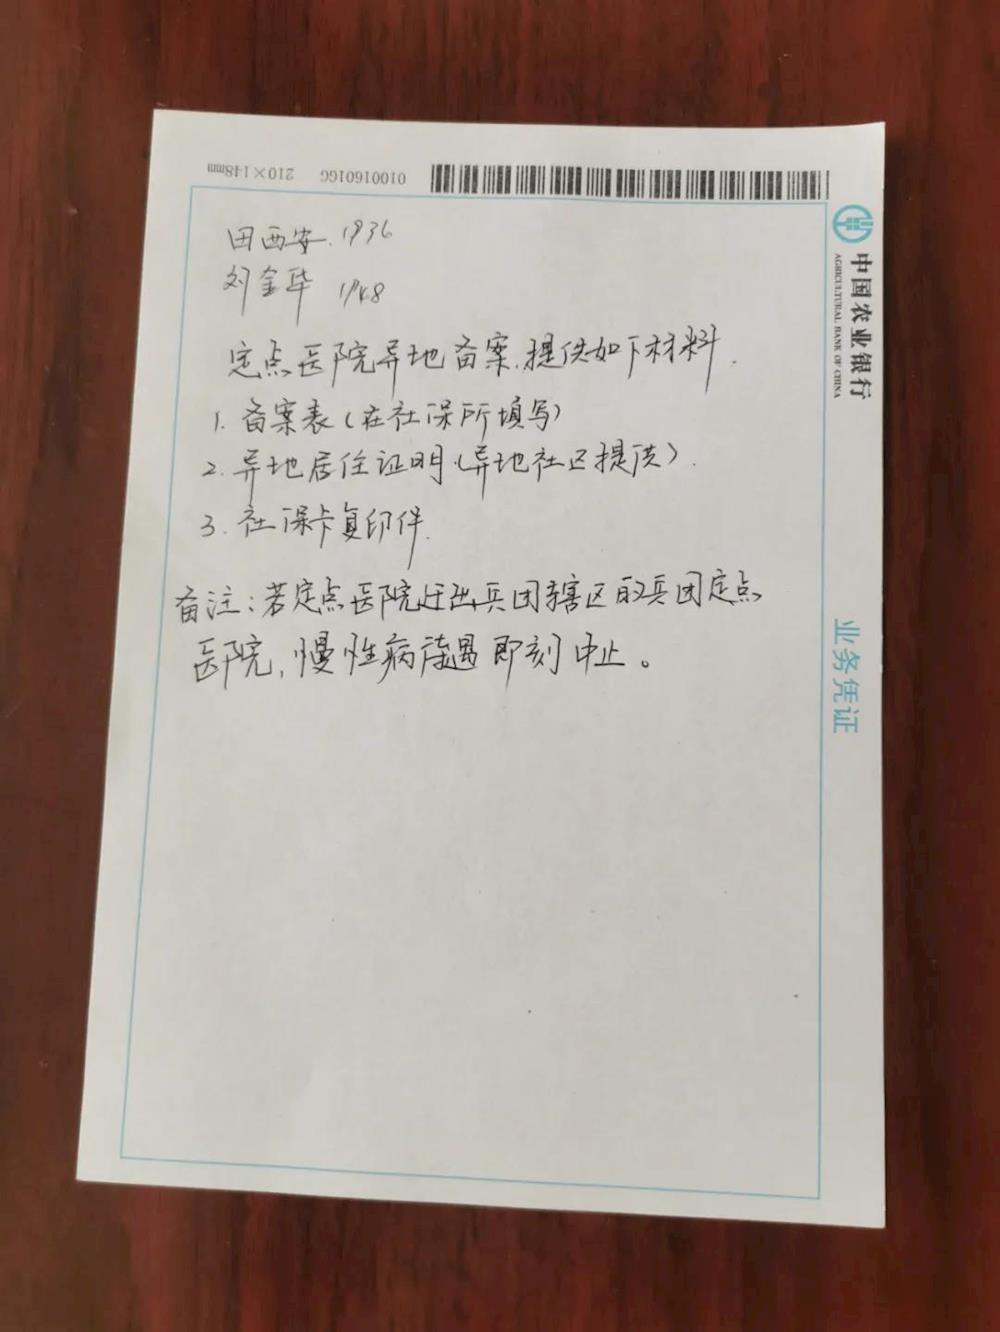 210×148mm
01001601GG
中国农业银行
AGRICULTURAL BANK OF CHINA
业务凭证
田西安.1936
刘金华 1948
定点医院异地备案.提供如下材料.
1. 备案表(在社保所填写)
2. 异地居住证明(异地社区提供).
3. 社保卡复印件.
备注:若定点医院迁出兵团辖区的兵团定点
医院,慢性病待遇即刻中止。